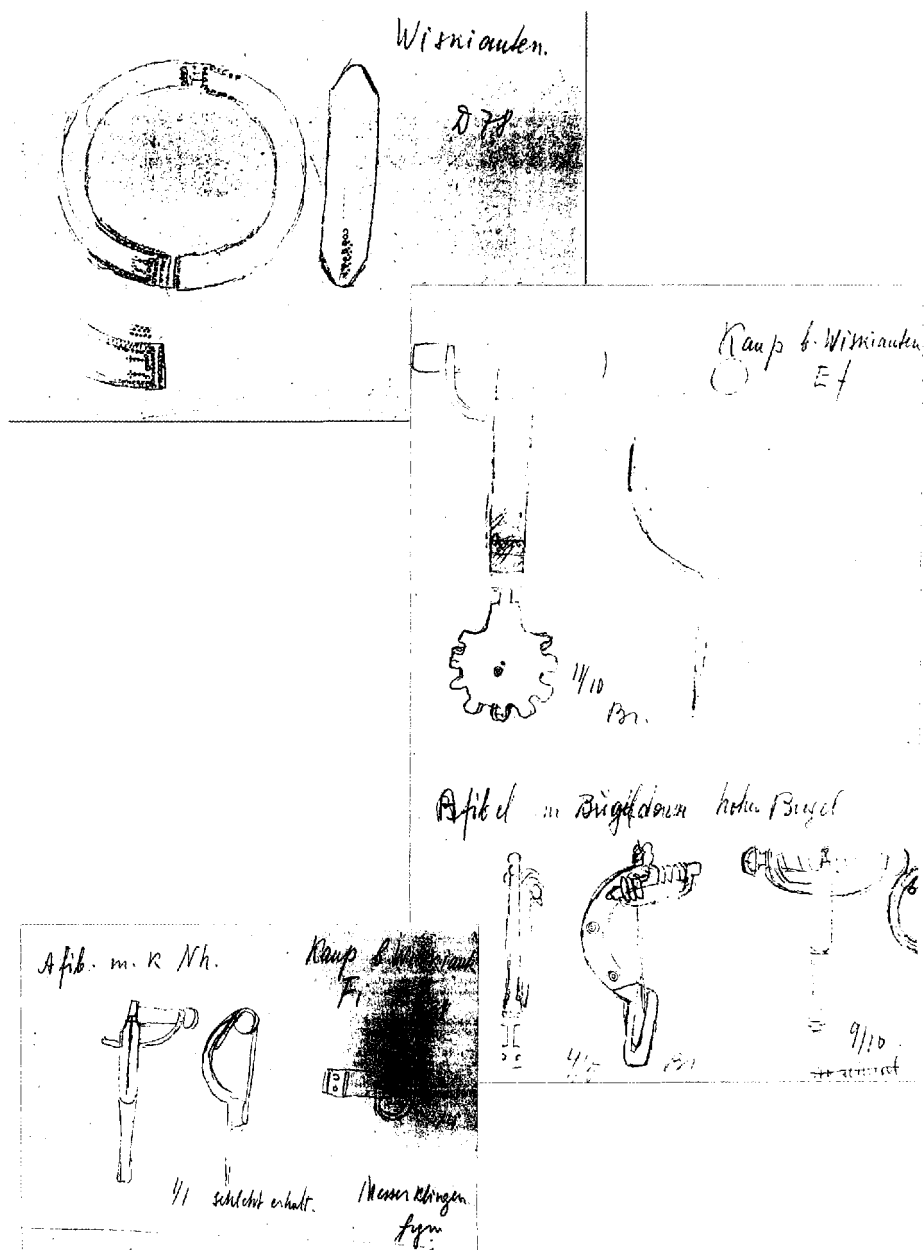 Wiskiauten.
D 78
Kaup b. Wiskiauten
E f
11/10
Br.
Afibel m Bügeldorn hoher Bügel
Br
9/10
Afib. m. k Nh.
Kaup b Wiskiaut
F1
1/1 schlecht erhalt.
Messerklingen